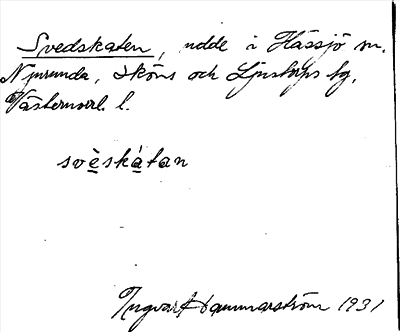 Svedskaten, udde i Hässjö sn.
Njurunda, Sköns och Ljustorps tg,
Västernorrl. l.
svèskátan
Ingvar Hammarström 1931